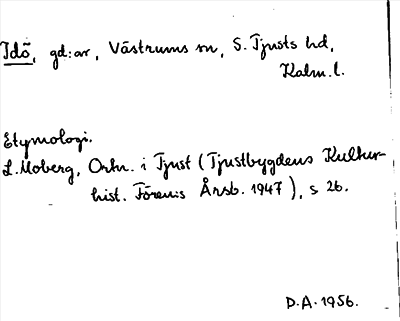 Idö, gd:ar, Västrums sn, S. Tjusts hd,
Kalm. l.
Etymologi.
L. Moberg, Ortn. i Tjust (Tjustbygdens Kultur-
hist. Förenis Årsb. 1947), s 26.
D.A. 1956.